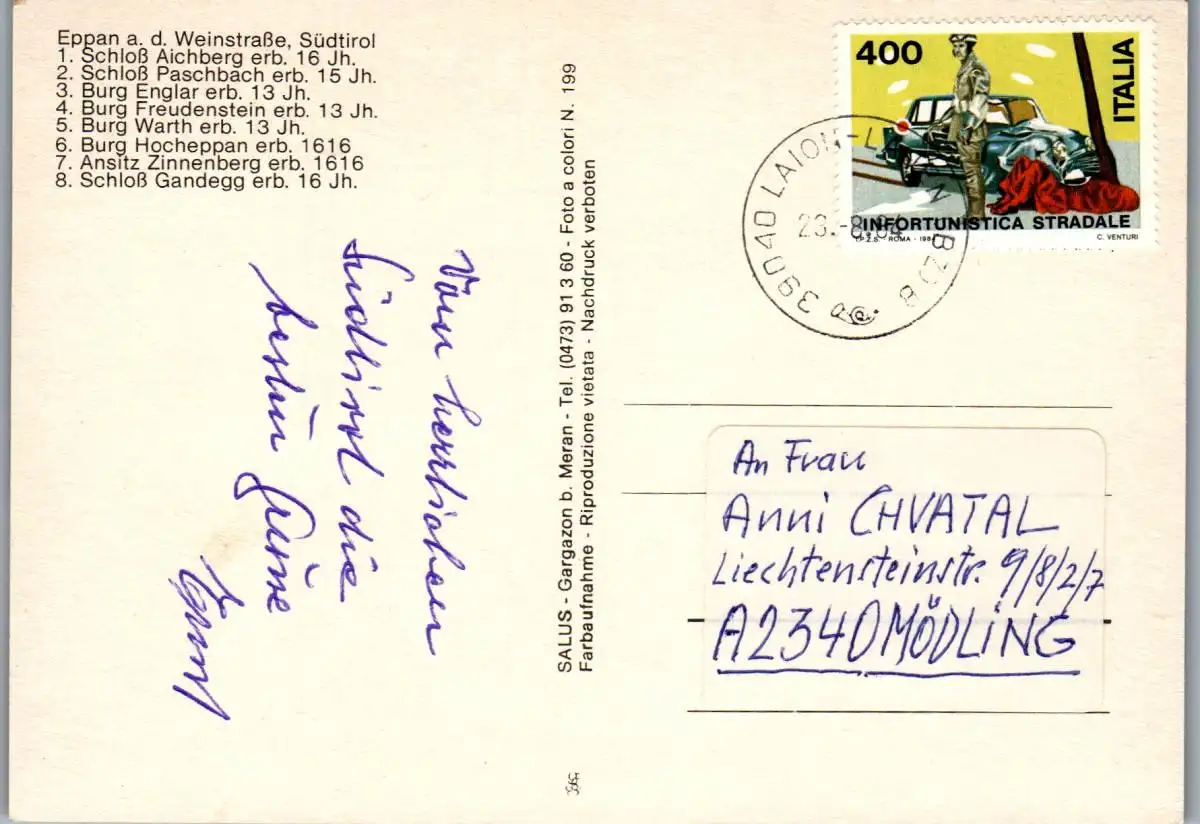 Eppan a. d. Weinstraße, Südtirol
1. Schloß Aichberg erb. 16 Jh.
2. Schloß Paschbach erb. 15 Jh.
3. Burg Englar erb. 13 Jh.
4. Burg Freudenstein erb. 13 Jh.
5. Burg Warth erb. 13 Jh.
6. Burg Hocheppan erb. 1616
7. Ansitz Zinnenberg erb. 1616
8. Schloß Gandegg erb. 16 Jh.
Vom herrlichen
Südtirol die
besten Grüße
SALUS - Gargazon b. Meran - Tel. (0473) 91 3 60 - Foto a colori N. 199
Farbaufnahme - Riproduzione vietata - Nachdruck verboten
400
ITALIA
INFORTUNISTICA STRADALE
I.P.Z.S. - ROMA - 1984
C. VENTURI
39040 LAION-
23.-8.84
BZ
An Frau
Anni CHVATAL
Liechtensteinstr. 9/8/2/7
A2340 MÖDLING